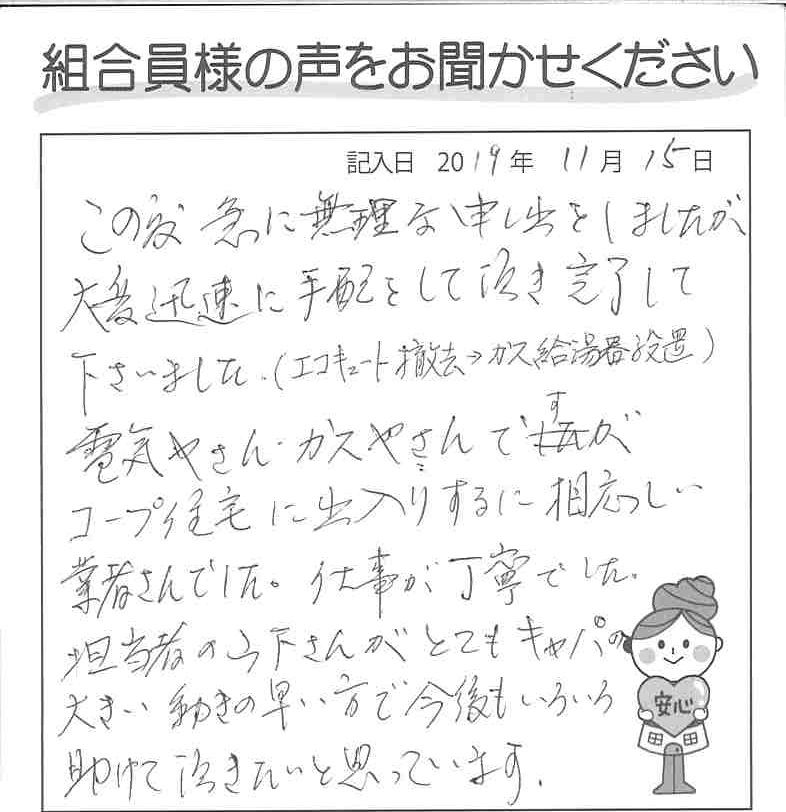 組合員様の声をお聞かせください
記入日 2019年 11月 15日
この度 急に無理な申し出をしましたが
大変迅速に手配をして頂き完了して
下さいました.(エコキュート撤去→ガス給湯器設置)
電気やさん・ガスやさんですが
コープ住宅に出入りするに相応しい
業者さんでした。仕事が丁寧でした.
担当者の山下さんがとてもキャパの
大きい動きの早い方で今後もいろいろ
助けて頂きたいと思っています.
安心